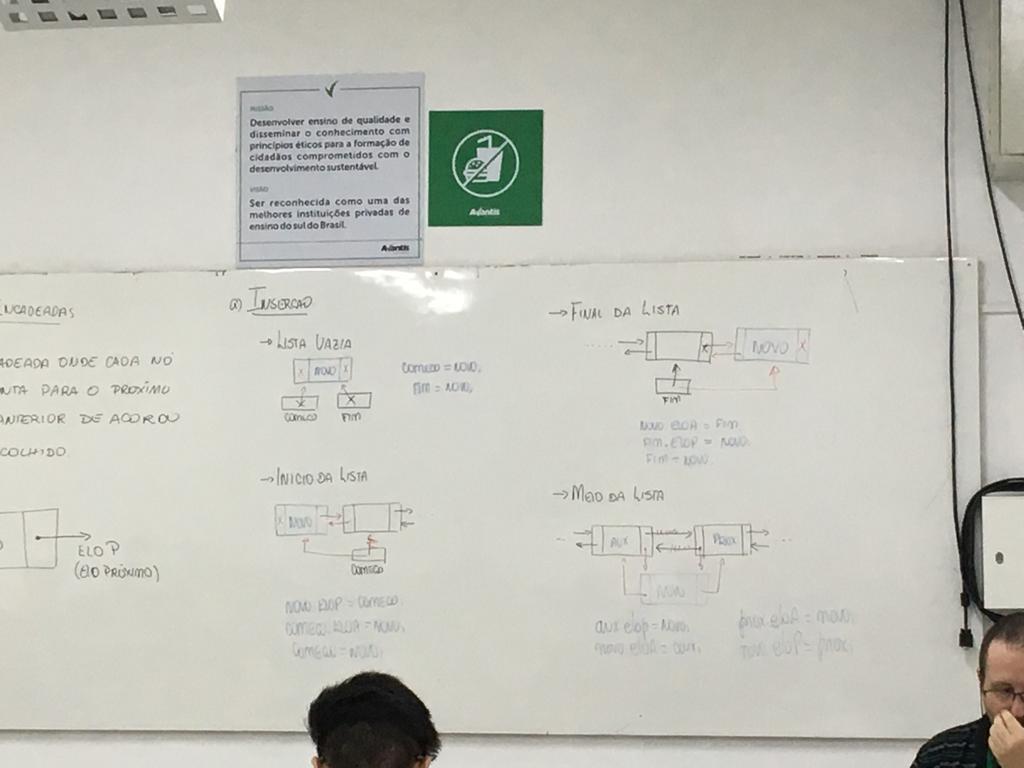 MISSÃO
Desenvolver ensino de qualidade e
disseminar o conhecimento com
princípios éticos para a formação de
cidadãos comprometidos com o
desenvolvimento sustentável.
VISÃO
Ser reconhecida como uma das
melhores instituições privadas de
ensino do sul do Brasil.
Avantis
Avantis
NCADEADAS
ADEADA ONDE CADA NÓ
NTA PARA O PROXIMO
ANTERIOR DE ACORDO
COLHIDO.
ELO P
(ELO PRÓXIMO)
a) INSERÇÃO
→ LISTA VAZIA
X NOVO X
COMECO = NOVO;
FIM = NOVO;
COMECO
FIM
→ INICIO DA LISTA
X NOVO
COMECO
NOVO.ELOP = COMECO;
COMECO.ELOA = NOVO;
COMECO = NOVO;
→ FINAL DA LISTA
NOVO X
FIM
NOVO.ELOA = FIM
FIM.ELOP = NOVO.
FIM = NOVO.
→ MEIO DA LISTA
AUX
PROX
NOVO
aux.elop = novo;
novo.eloA = aux;
prox.eloA = novo;
novo.eloP = prox;